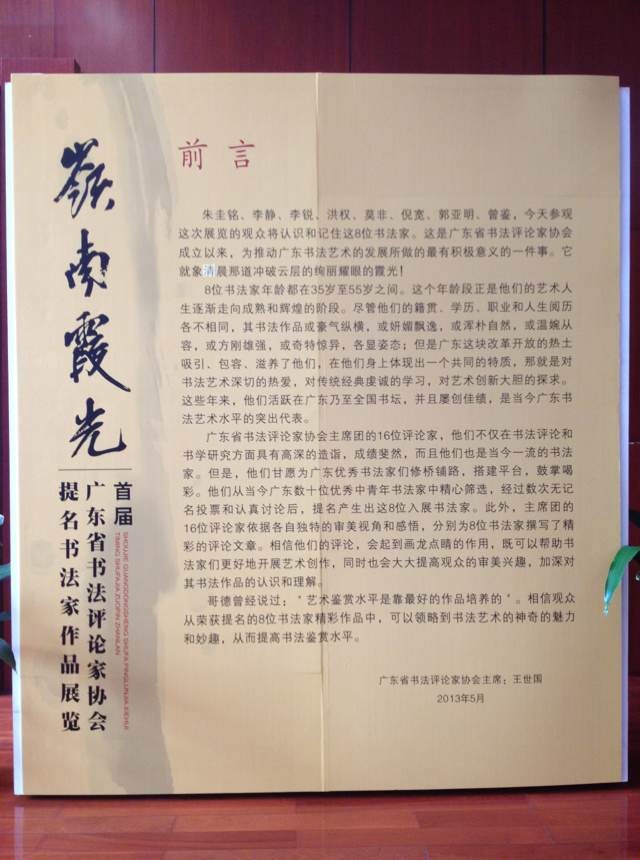 嶺南霞光
首届
SHOUJIE GUANGDONGSHENG SHUFA PINGLUNJIA XIEHUI
TIMING SHUFAJIA ZUOPIN ZHANLAN
广东省书法评论家协会
提名书法家作品展览
前言
朱圭铭、李静、李锐、洪权、莫非、倪宽、郭亚明、曾鉴，今天参观
这次展览的观众将认识和记住这8位书法家。这是广东省书法评论家协会
成立以来，为推动广东书法艺术的发展所做的最有积极意义的一件事。它
就象清晨那道冲破云层的绚丽耀眼的霞光！
8位书法家年龄都在35岁至55岁之间。这个年龄段正是他们的艺术人
生逐渐走向成熟和辉煌的阶段。尽管他们的籍贯、学历、职业和人生阅历
各不相同，其书法作品或豪气纵横，或妍媚飘逸，或浑朴自然，或温婉从
容，或方刚雄强，或奇特惊异，各显姿态；但是广东这块改革开放的热土
吸引、包容、滋养了他们，在他们身上体现出一个共同的特质，那就是对
书法艺术深切的热爱，对传统经典虔诚的学习，对艺术创新大胆的探求。
这些年来，他们活跃在广东乃至全国书坛，并且屡创佳绩，是当今广东书
法艺术水平的突出代表。
广东省书法评论家协会主席团的16位评论家，他们不仅在书法评论和
书学研究方面具有高深的造诣，成绩斐然，而且他们也是当今一流的书法
家。但是，他们甘愿为广东优秀书法家们修桥铺路，搭建平台，鼓掌喝
彩。他们从当今广东数十位优秀中青年书法家中精心筛选，经过数次无记
名投票和认真讨论后，提名产生出这8位入展书法家。此外，主席团的
16位评论家依据各自独特的审美视角和感悟，分别为8位书法家撰写了精
彩的评论文章。相信他们的评论，会起到画龙点睛的作用，既可以帮助书
法家们更好地开展艺术创作，同时也会大大提高观众的审美兴趣，加深对
其书法作品的认识和理解。
哥德曾经说过："艺术鉴赏水平是靠最好的作品培养的"。相信观众
从荣获提名的8位书法家精彩作品中，可以领略到书法艺术的神奇的魅力
和妙趣，从而提高书法鉴赏水平。
广东省书法评论家协会主席：王世国
2013年5月